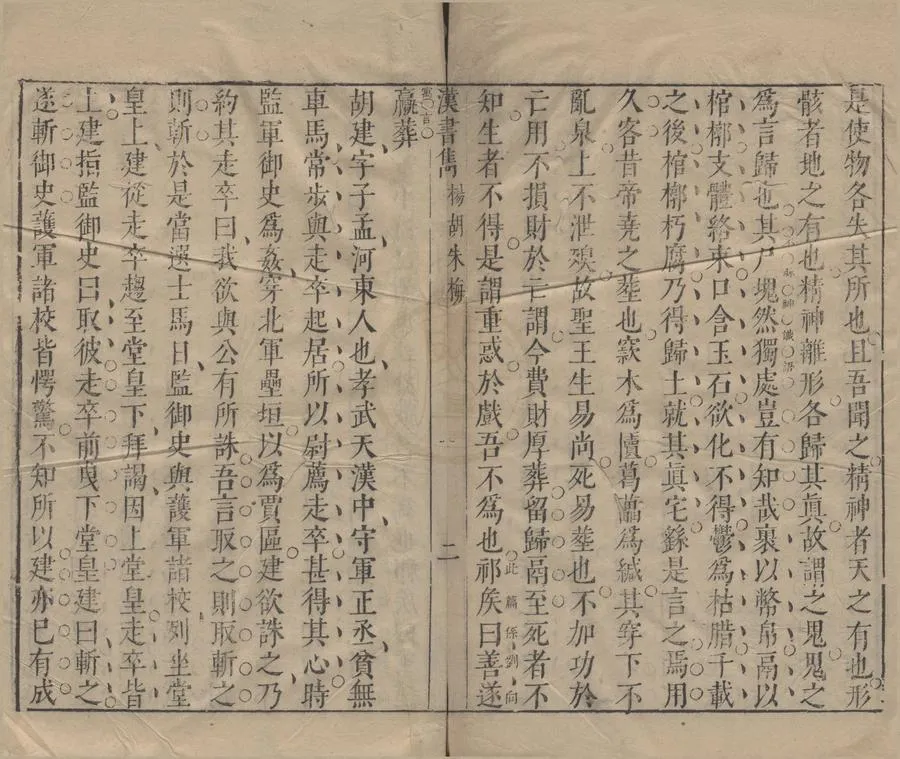 是使物各失其所也且吾聞之精神者天之有也形
骸者地之有也精神離形各歸其眞故謂之鬼鬼之
爲言歸也其尸塊然獨處豈有知哉裹以幣帛鬲以
棺槨支體絡束口含玉石欲化不得鬱爲枯腊千載
之後棺槨朽腐乃得歸土就其眞宅繇是言之焉用
久客昔帝堯之葬也窾木爲匵葛藟爲緘其穿下不
亂泉上不泄殠故聖王生易尚死易葬也不加功於
亡用不損財於亡謂今費財厚葬留歸鬲至死者不
知生者不得是謂重惑於戲吾不爲也祁矦曰善遂
此篇係劉向
漢書雋
楊胡朱梅
二
寓言
臝葬
胡建字子孟河東人也孝武天漢中守軍正丞貧無
車馬常步與走卒起居所以尉薦走卒甚得其心時
監軍御史爲姦穿北軍壘垣以爲賈區建欲誅之乃
約其走卒曰我欲與公有所誅吾言取之則取斬之
則斬於是當選士馬日監御史與護軍諸校列坐堂
皇上建從走卒趨至堂皇下拜謁因上堂皇走卒皆
上建指監御史曰取彼走卒前曳下堂皇建曰斬之
遂斬御史護軍諸校皆愕驚不知所以建亦已有成